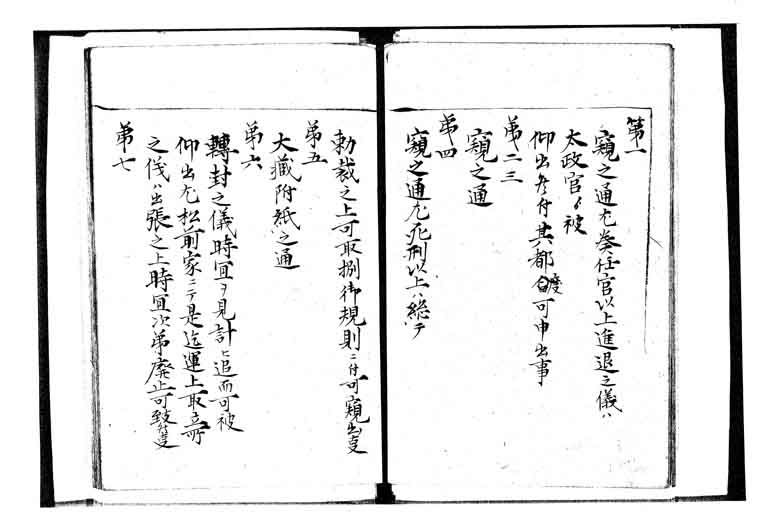 第一
窺之通尤奏任官以上進退之儀ハ
太政官ゟ被
仰出候付其都度可申出事
第二三
窺之通
第四
窺之通尤死刑以上ハ総テ
勅裁之上可取捌御規則ニ付可窺出事
第五
大蔵附紙之通
第六
轉封之儀時宜ヲ見計ヒ追而可被
仰出尤松前家ニテ是迄運上取立所
之儀ハ出張之上時宜次第廃止可致事
第七